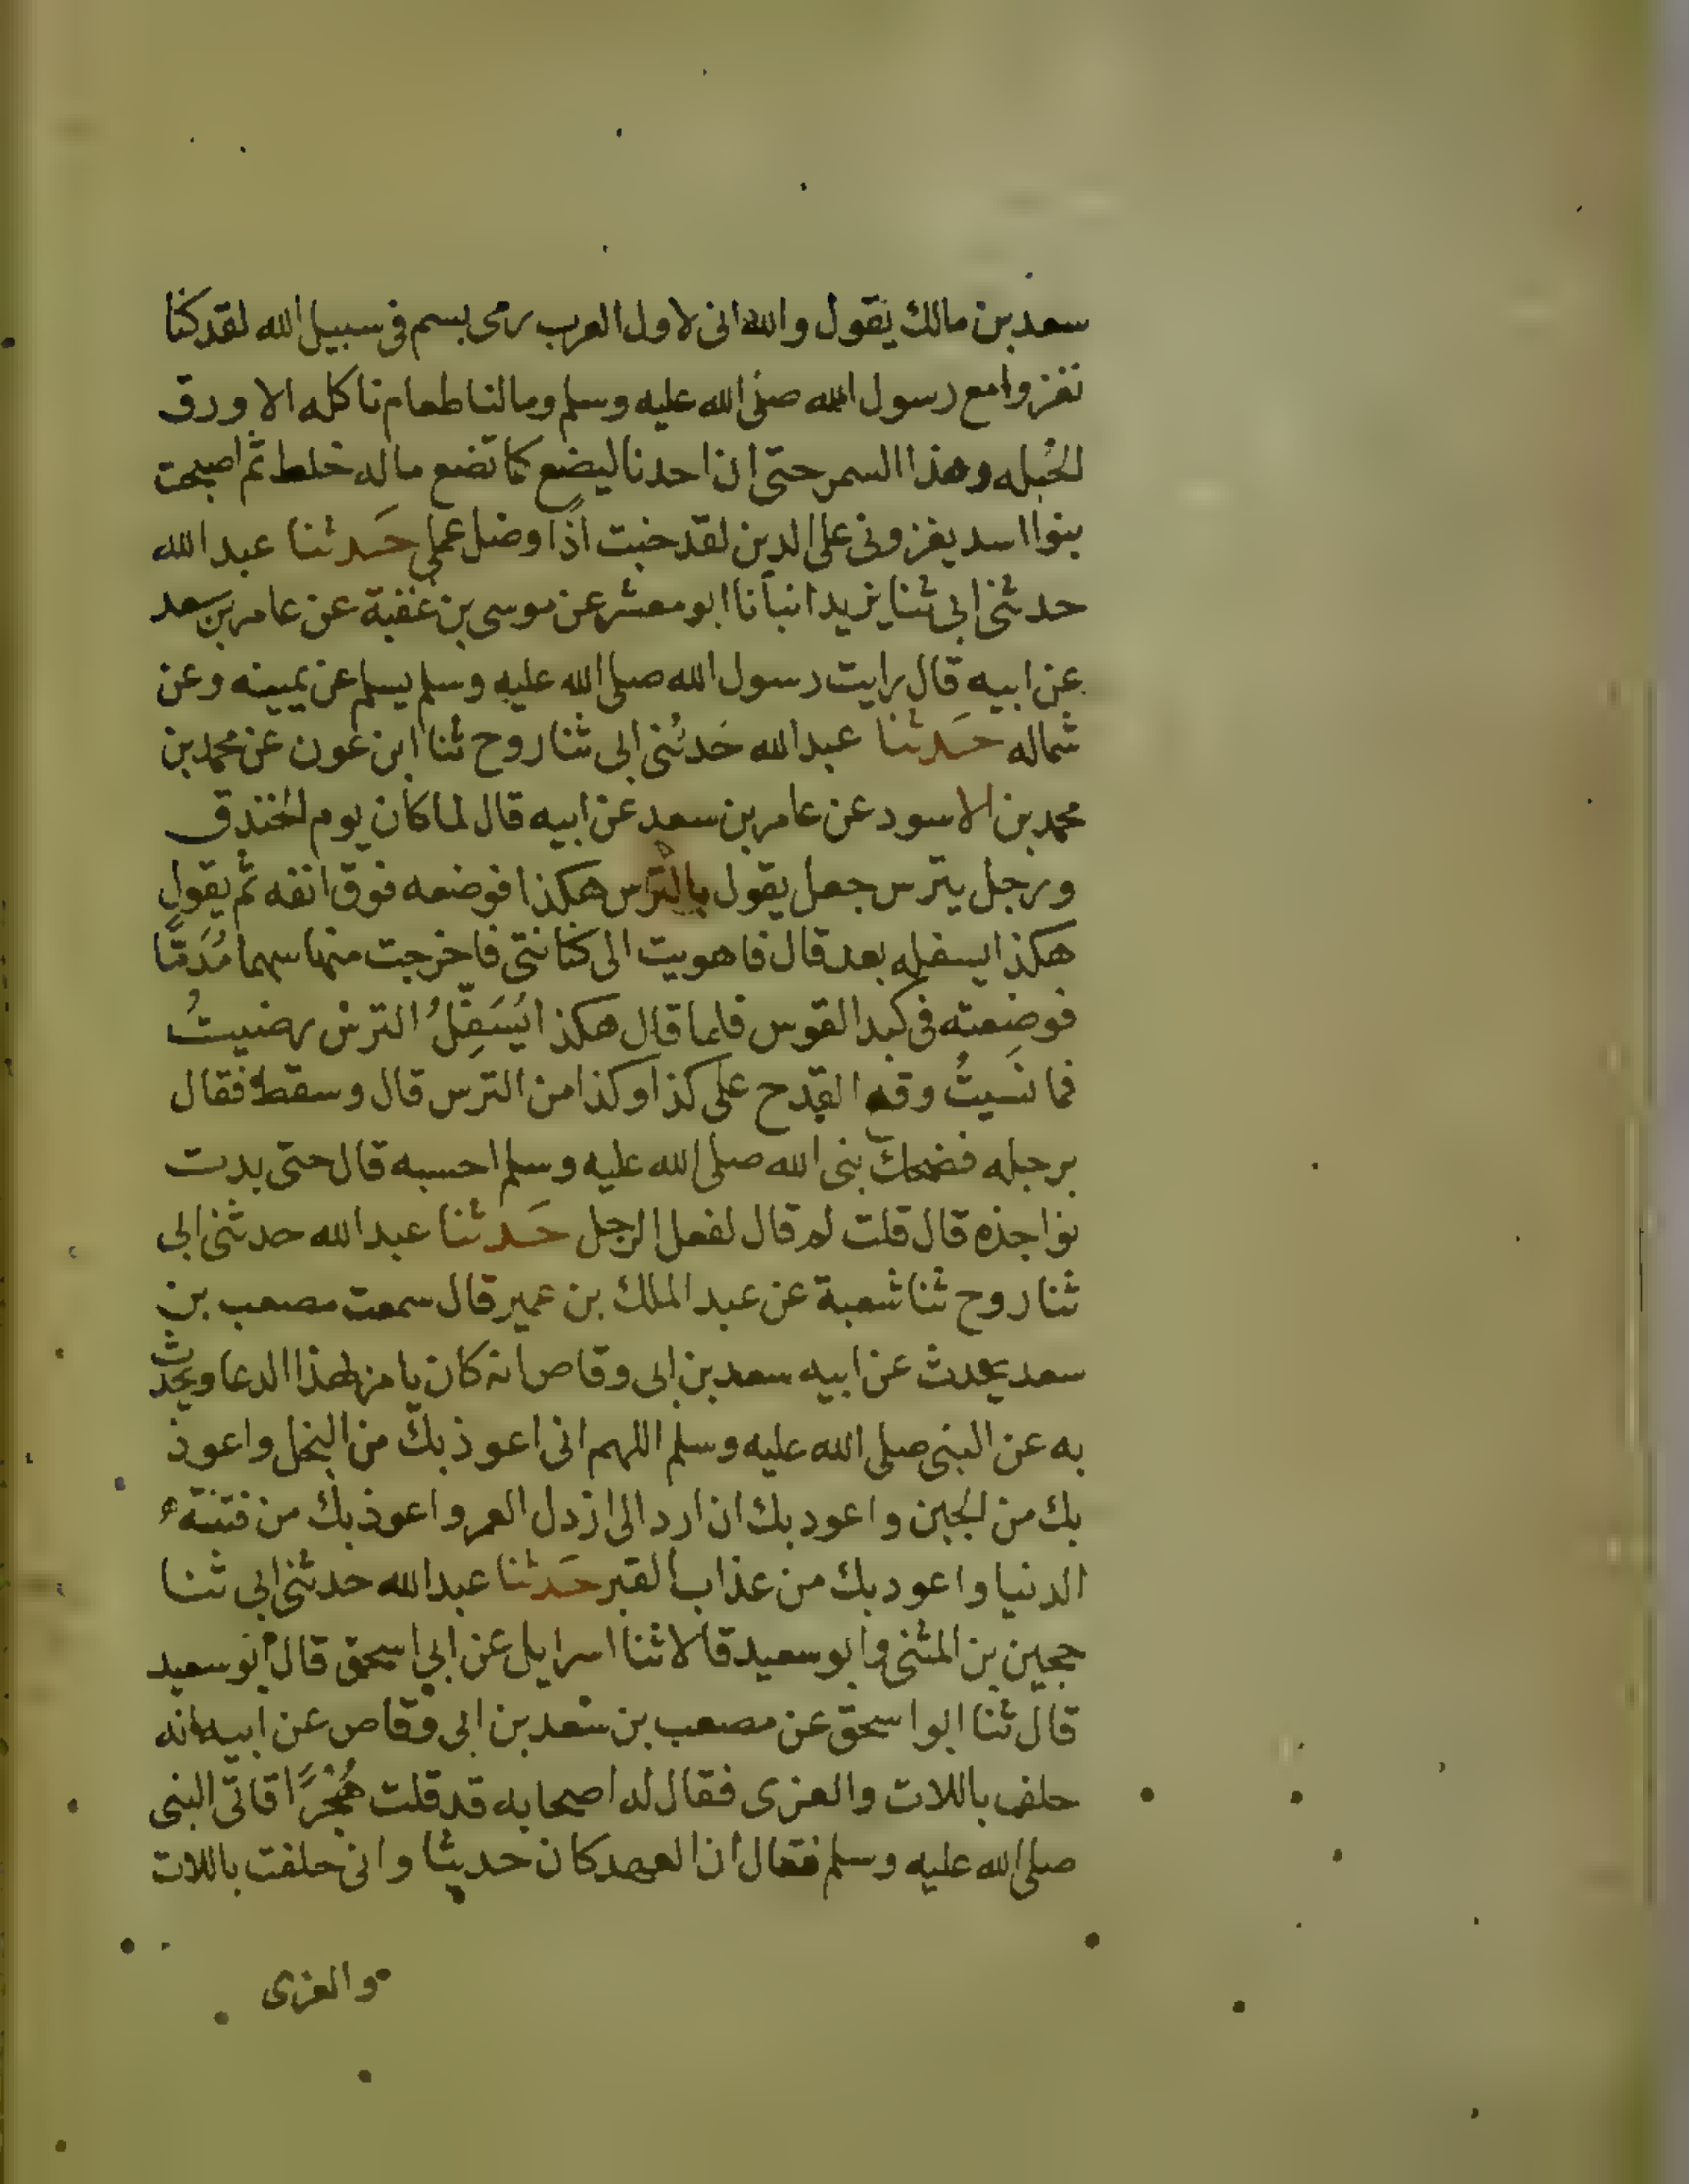 سعد بن مالك يقول والله انى لاول العرب رمى بسهم فى سبيل الله لقد كنا
نغزوا مع رسول الله صلى الله عليه وسلم ومالنا طعام ناكله الا ورق
الحُبله وهذا السمر حتى ان احدنا ليضع كما تضع ماله خلط ثم اصبحت
بنوا اسد يعزرونى على الدين لقد خبت اذًا وضل عملى حَدثنا عبد الله
حدثنى ابى ثنا يزيد انبأنا ابو معشر عن موسى بن عقبة عن عامر بن سعد
عن ابيه قال رايت رسول الله صلى الله عليه وسلم يسلم عن يمينه وعن
شماله حَدثنا عبد الله حَدثنى ابى ثنا روح ثنا ابن عون عن محمد بن
محمد بن الاسود عن عامر بن سعد عن ابيه قال لما كان يوم الخندق
ورجل يترس جعل يقول بالترس هكذا فوضعه فوق انفه ثم يقول
هكذا يسفله بعد قال فاهويت الى كنانتى فاخرجت منها سهما مُدَمًّا
فوضعته فى كبد القوس فلما قال هكذا يُسَفِّلُ الترس رميتُ
فما نَسيتُ وقع القدح على كذا وكذا من الترس قال وسقط فقال
برجله فضحك نبى الله صلى الله عليه وسلم احسبه قال حتى بدت
نواجذه قال قلت لم قال لفعل الرجل حَدثنا عبد الله حدثنى ابى
ثنا روح ثنا شعبة عن عبد الملك بن عمير قال سمعت مصعب بن
سعد يحدث عن ابيه سعد بن ابى وقاص انه كان يامر بهذا الدعا ويحدث
به عن النبى صلى الله عليه وسلم اللهم انى اعوذ بك من البخل واعوذ
بك من الجبن واعود بك ان ارد الى ازدل العمر واعوذ بك من فتنة
الدنيا واعود بك من عذاب القبر حَدثنا عبد الله حدثنى ابى ثنا
حجين بن المثنى وابو سعيد قالا ثنا اسرايل عن ابى اسحق قال ابو سعيد
قال ثنا ابوا سحق عن مصعب بن سعد بن ابى وقاص عن ابيه انه
حلف باللات والعزى فقال له اصحابه قد قلت هُجْرًا فاتى النبى
صلى الله عليه وسلم فقال ان العهد كان حديثا وانى حلفت باللات
والعزى